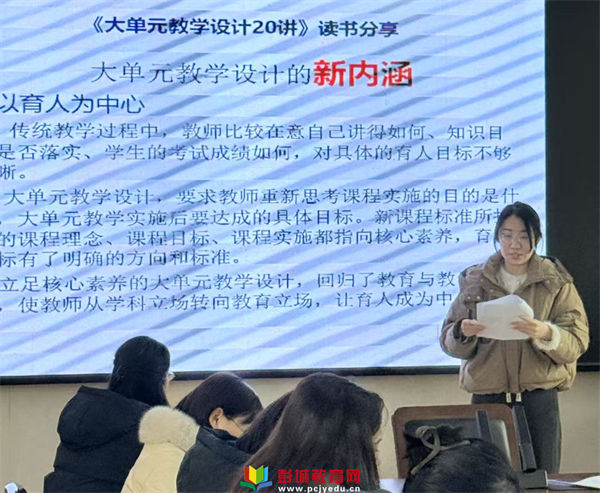 《大单元教学设计20讲》读书分享
大单元教学设计的新内涵
以育人为中心
传统教学过程中，教师比较在意自己讲得如何、知识目
是否落实、学生的考试成绩如何，对具体的育人目标不够
晰。
大单元教学设计，要求教师重新思考课程实施的目的是什
，大单元教学实施后要达成的具体目标。新课程标准所
的课程理念、课程目标、课程实施都指向核心素养，育
标有了明确的方向和标准。
立足核心素养的大单元教学设计，回归了教育与教
，使教师从学科立场转向教育立场，让育人成为中
彭城教育网
www.pcjyedu.cn